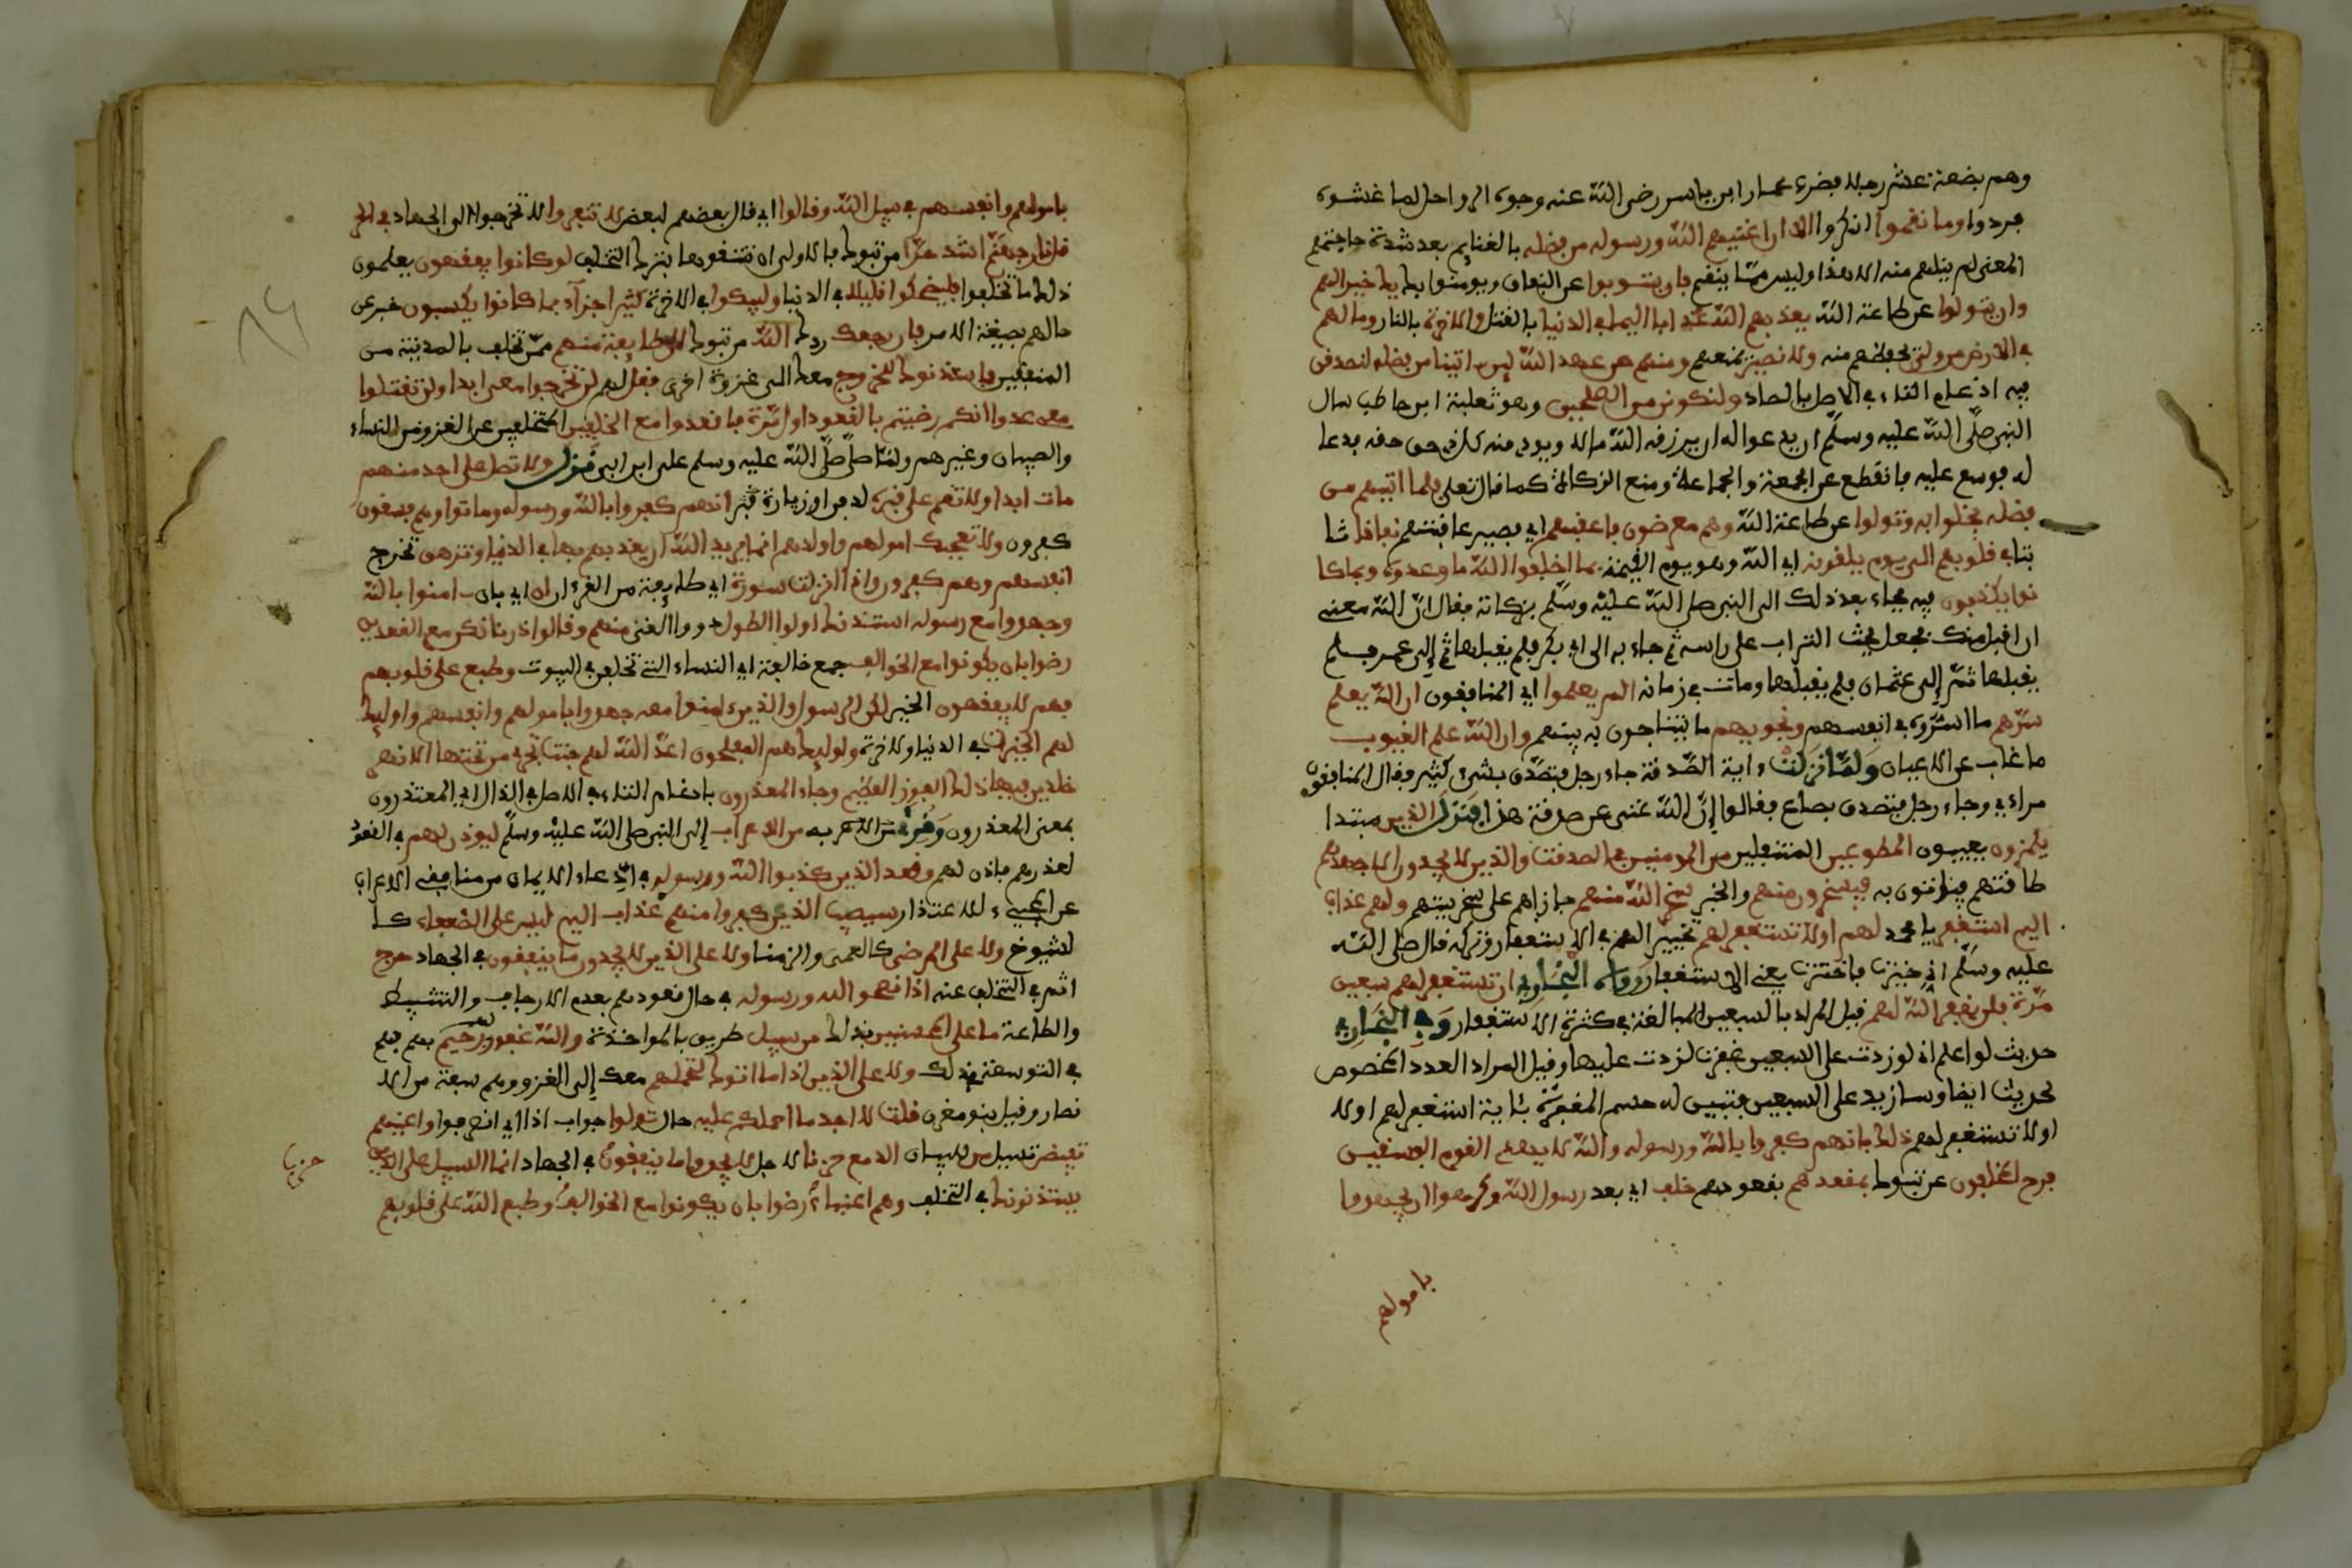 وهم بضعة عشر رجلا فضرب عمار ابن ياسر رضى الله عنه وجوه الرواحل لما غشوه
فردوا وما نقموا انكروا الا ان اغنيهم الله ورسوله من فضله بالغنايم بعد شدة حاجتهم
المعنى لم ينلهم منه الا هذا وليس مما ينقم بان يتوبوا عن النفاق ويومنوا بك يك خيرا لهم
وان يتولوا عن طاعة الله يعذبهم الله عذابا اليما في الدنيا بالقتل والاخرة بالنار وما لهم
في الارض من ولي يحفظهم منه ولا نصير يمنعهم ومنهم من عهد الله لين اتينا من فضله لنصدقن
فيه ادغام التاء في الاصل بالصاد ولنكونن من الصلحين وهو ثعلبة ابن حاطب سال
النبي صلى الله عليه وسلم ان يدعوا له ان يرزقه الله مالا ويودي منه كل ذي حق حقه فدعا
له فوسع عليه فانقطع عن الجمعة والجماعة ومنع الزكاة كما قال تعلى فلما اتيهم من
فضله بخلوا به وتولوا عن طاعة الله وهم معرضون فاعقبهم اي فصير عاقبتهم نفاقا ثا
بتا في قلوبهم الى يوم يلقونه اي الله وهو يوم القيمة بما اخلفوا الله ما وعدوه وبما كا
نوا يكذبون فيه فجاء بعد ذلك الى النبي صلى الله عليه وسلم بزكاته فقال ان الله معني
ان اقبل منك فجعل يحث التراب على راسه ثم جاء به الى ابي بكر فلم يقبلها ثم إلى عمر فلم
يقبلها ثم إلى عثمان فلم يقبلها ومات في زمانه الم يعلموا اي المنافقون ان الله يعلم
سرهم ما اسروه في انفسهم ونجويهم ما يتناجون به بينهم وان الله علم الغيوب
ما غاب عن الاعيان ولما نزلت ءاية الصدقة جاء رجل فتصدق بشيء كثير فقال المنافقون
مراءي وجاء رجل فتصدق بصاع فقالوا إن الله غني عن صدقة هذا فنزل الذين مبتدا
يلمزون يعيبون المطوعين المتنفلين من المومنين في الصدقت والذين لا يجدون الا جهدهم
طاقتهم فياتون به فيسخرون منهم والخبر سخر الله منهم جازاهم على سخريتهم ولهم عذاب
اليم استغفر يا محمد لهم او لا تستغفر لهم تخيير له في الاستغفار وتركه قال صلى الله
عليه وسلم اني خيرت فاخترت يعني الاستغفار رواه البخاري ان تستغفر لهم سبعين
مرة فلن يغفر الله لهم قيل المراد بالسبعين المبالغة في كثرة الاستغفار وفي البخاري
حديث لو اعلم اني لو زدت على السبعين غفرت لزدت عليها وقيل المراد العدد المخصوص
لحديث ايضا وسازيد على السبعين فتبين له حسم المغفرة بئاية استغفر لهم او لا
او لا تستغفر لهم ذلك بانهم كفروا بالله ورسوله والله لا يهدي القوم الفسقين
فرح المخلفون عن تبوك بمقعدهم بقعودهم خلف اي بعد رسول الله وكرهوا ان يجهدوا
بامولهم
بامولهم وانفسهم في سبيل الله وقالوا اي قال بعضهم لبعض لا تنفروا لا تخرجوا الى الجهاد في الحر
قل نار جهنم اشد حرا من تبوك فالاولى ان تتقوها بترك التخلف لو كانوا يفقهون يعلمون
ذلك ما تخلفوا فليضحكوا قليلا في الدنيا وليبكوا في الاخرة كثيرا جزآء بما كانوا يكسبون خبر عن
حالهم بصيغة الامر فان رجعك ردك الله من تبوك الى طايفة منهم ممن تخلف بالمدينة من
المنفقين فاستذنوك للخروج معك الى غزوة اخرى فقل لهم لن تخرجوا معي ابدا ولن تقتلوا
معي عدوا انكم رضيتم بالقعود اول مرة فاقعدوا مع الخلفين المتخلفين عن الغزو من النساء
والصبيان وغيرهم ولما صلى صلى الله عليه وسلم على ابن ابي فنزل ولا تصل على احد منهم
مات ابدا ولا تقم على قبره لدفن او زيارة قبر انهم كفروا بالله ورسوله وماتوا وهم فسقون
كفرون ولا تعجبك امولهم واولدهم انما يريد الله ان يعذبهم بها في الدنيا وتزهق تخرج
انفسهم وهم كفرون واذا انزلت سورة اي طايفة من القرءان ان اي بان ـ امنوا بالله
وجهدوا مع رسوله استذنك اولوا الطول ذووا الغنى منهم وقالوا ذرنا نكن مع القعدين
رضوا بان يكونوا مع الخوالف جمع خالفة اي النساء التي تخلفن في البيوت وطبع على قلوبهم
فهم لا يفقهون الخير لكن الرسول والذين ءامنوا معه جهدوا بامولهم وانفسهم واوليك
لهم الخيرات في الدنيا والاخرة واوليك هم المفلحون اعد الله لهم جنت تجري من تحتها الانهر
خلدين فيها ذلك الفوز العظيم وجاء المعذرون بادغام التاء في الاصل في الذال اي المعتذرون
بمعنى المعذورون وقرئ به من الاعراب إلى النبي صلى الله عليه وسلم ليوذن لهم في القعود
لعذرهم فاذن لهم وقعد الذين كذبوا الله ورسوله في ادعاء الايمان من منافقي الاعراب
عن المجيء للاعتذار سيصيب الذين كفروا منهم عذاب اليم ليس على الضعفاء كا
لشيوخ ولا على المرضى كالعمي والزمنا ولا على الذين لا يجدون ما ينفقون في الجهاد حرج
اثم في التخلف عنه اذا نصحوا لله ورسوله في حال قعودهم بعدم الارجاف والتثبيط
والطاعة ما على المحسنين بذلك من سبيل طريق بالمواخذة والله غفور لهم رحيم بهم فهم
في التوسعة في ذلك ولا على الذين اذا ما اتوك لتحملهم معك إلى الغزو وهم سبعة من الا
نصار وقيل بنو مقرن قلت لا اجد ما احملكم عليه حال تولوا جواب اذا اي انصرفوا واعينهم
تفيض تسيل من للبيان الدمع حزنا لاجل الا يجدوا ما ينفقون في الجهاد انما السبيل على الذين
يستذنونك في التخلف وهم اغنياء رضوا بان يكونوا مع الخوالف وطبع الله على قلوبهم
حزب